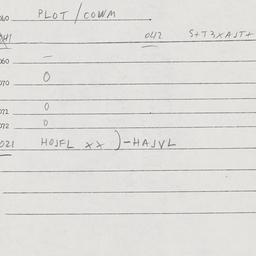 060 PLOT / COWM
041 042 S+T3XAJT+
060 —
070 0
071 0
072 0
021 HOJFL XX )-HAJVL